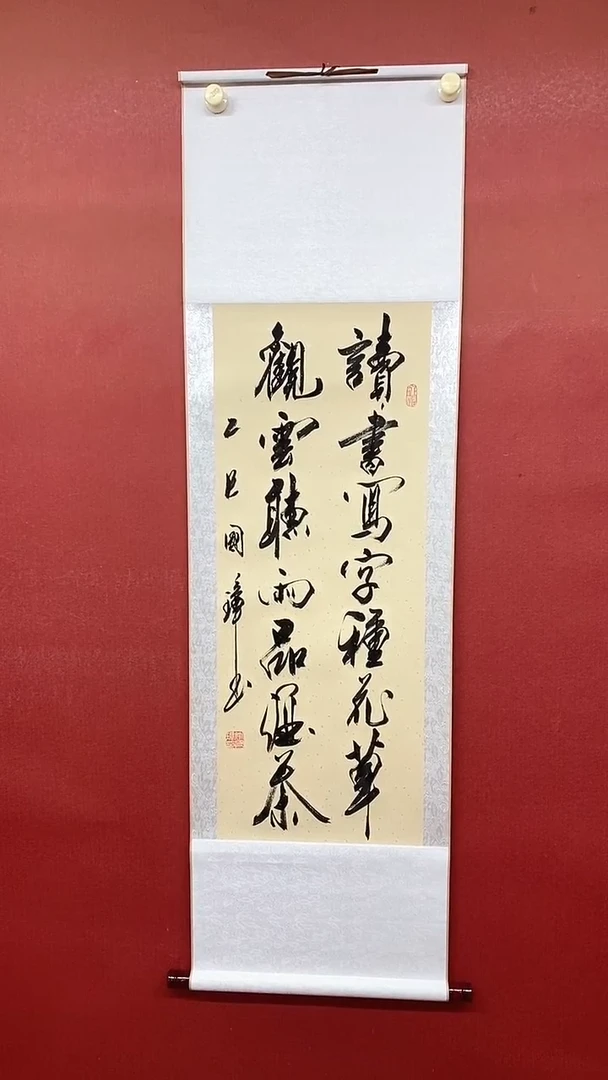 讀書寫字種花草
觀雲聽雨品茶
乙巳國璋书